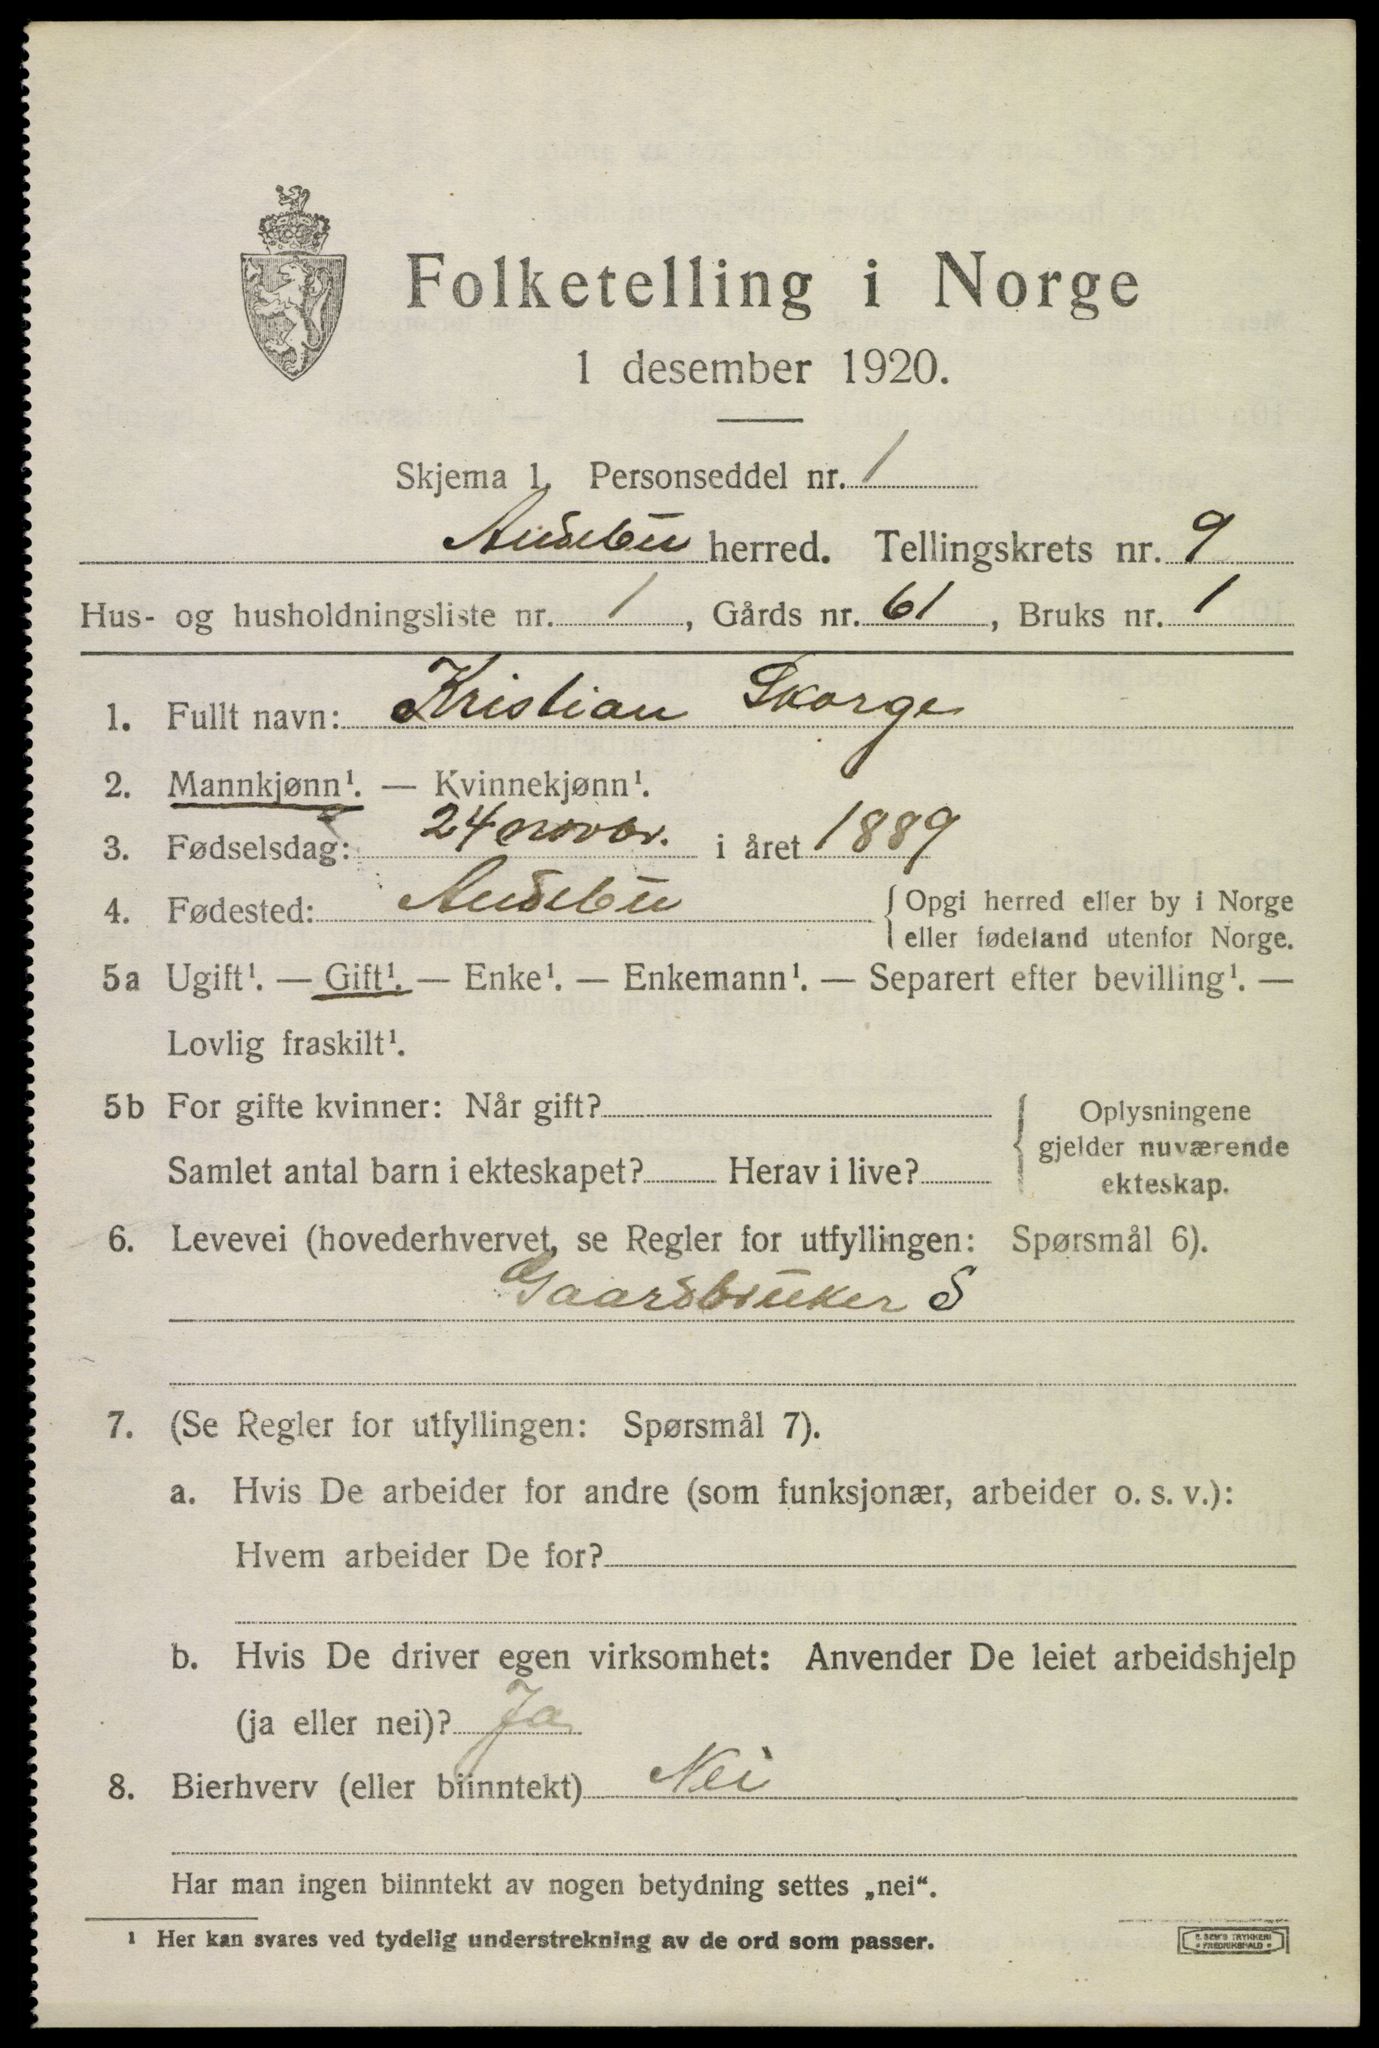 Folketelling i Norge
1 desember 1920.
Skjema 1. Personseddel nr. 1
Andebu herred. Tellingskrets nr. 9
Hus- og husholdningsliste nr. 1, Gårds nr. 61, Bruks nr. 1
1. Fullt navn: Kristian Skorge
2. Mannkjønn¹. — Kvinnekjønn¹.
3. Fødselsdag: 24 novbr. i året 1889
4. Fødested: Andebu { Opgi herred eller by i Norge
eller fødeland utenfor Norge.
5a Ugift¹. — Gift¹. — Enke¹. — Enkemann¹. — Separert efter bevilling¹. —
Lovlig fraskilt¹.
5b For gifte kvinner: Når gift?
Samlet antal barn i ekteskapet? Herav i live?
{ Oplysningene
gjelder nuværende
ekteskap.
6. Levevei (hovederhvervet, se Regler for utfyllingen: Spørsmål 6).
Gaardbruker S
7. (Se Regler for utfyllingen: Spørsmål 7).
a. Hvis De arbeider for andre (som funksjonær, arbeider o. s. v.):
Hvem arbeider De for?
b. Hvis De driver egen virksomhet: Anvender De leiet arbeidshjelp
(ja eller nei)? Ja
8. Bierhverv (eller biinntekt) Nei
Har man ingen biinntekt av nogen betydning settes „nei“.
¹ Her kan svares ved tydelig understrekning av de ord som passer.
E. SEM'S TRYKKERI
• FREDRIKSHALD •